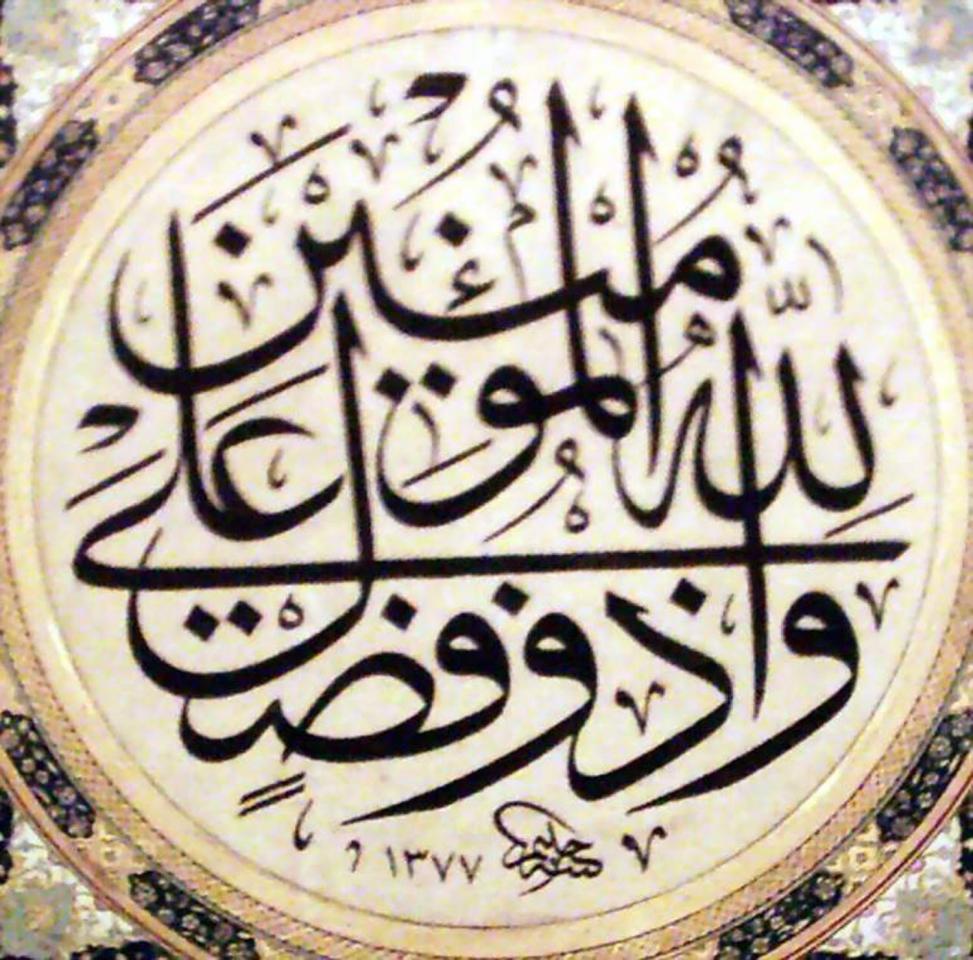 وَاللّٰهُ ذُو فَضْلٍ عَلَى الْمُؤْمِنِينَ
١٣٧٧